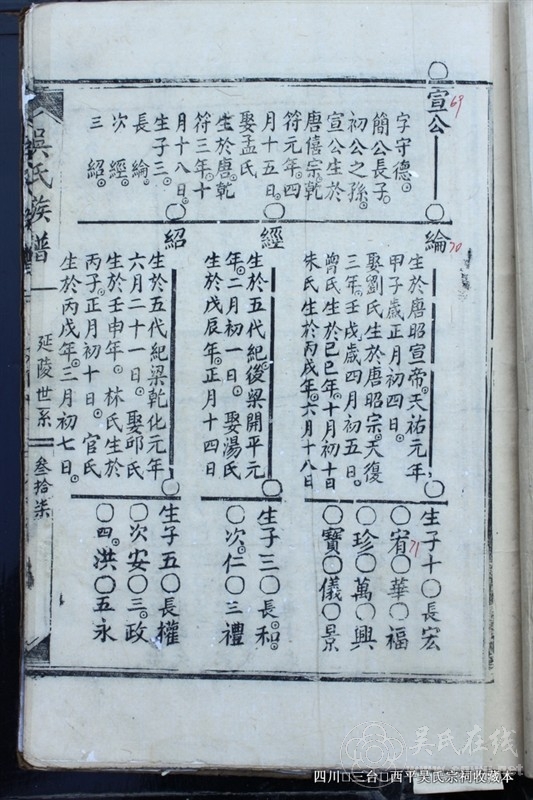 宣公
69
字守德。
簡公長子。
初公之孫。
宣公生於
唐僖宗。乾
符元年。四
月十五日。
娶孟氏
生於唐。乾
符三年。十
月十八日。
生子三。
長綸。
次經。
三紹。
綸
70
生於唐昭宣帝。天祐元年,
甲子歲正月初四日。
娶劉氏生於唐昭宗。天復
三年。壬戌歲四月初五日。
曾氏生於己巳年。十月初十日
朱氏生於丙戌年。六月十八日
生子十〇長宏
〇宥〇華〇福
71
〇珍〇萬〇興
〇寶〇儀〇景
經
生於五代紀。後梁開平元
年。二月初一日。娶湯氏
生於戊辰年。正月十四日
生子三〇長。和。
〇次。仁〇三禮
紹
生於五代紀梁乾化元年
六月二十一日。娶邱氏
生於壬申年。林氏生於
丙子。正月初十日。官氏
生於丙戌年。三月初七日。
生子五〇長權
〇次安〇三。政
〇四。洪〇五永
吳氏族譜
延陵世系
叁拾柒
吴氏在线
四川□三台□西平吴氏宗祠收藏本